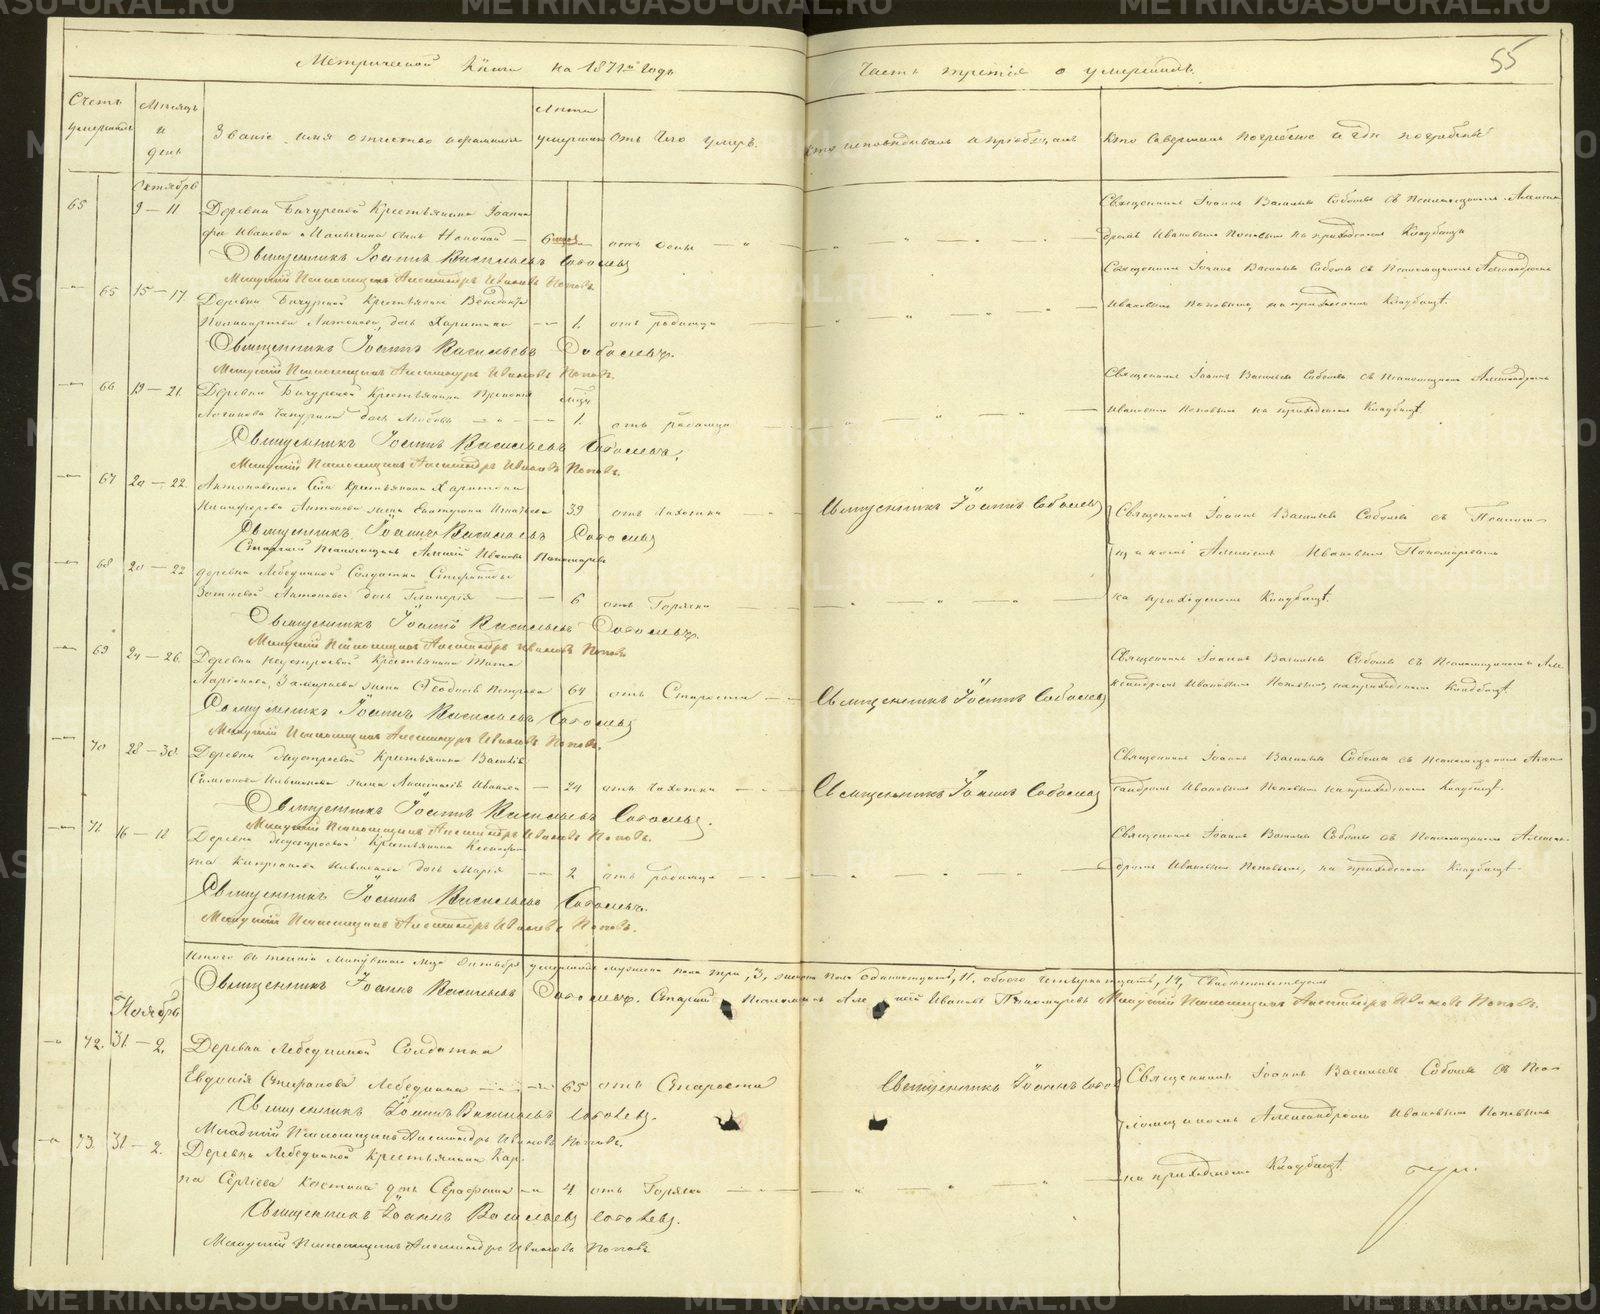 METRIKI.GASU-URAL.RU
55
Метрической Книги на 1871й годъ
Часть третія о умершихъ.
Счетъ умершихъ
Мѣсяцъ и день
Званіе, имя отчество и фамилія
Лѣта умершихъ
Отъ чего умеръ.
Кто исповѣдывалъ и пріобщалъ
Кто совершалъ погребеніе и гдѣ погребены
Октябрь
65
9 — 11
Деревни Бичуреной Крестьянина
сынъ Николай — 6 отъ оспы
Священникъ Іоаннъ Васильевъ Соболевъ
Младшій Псаломщикъ Александръ Ивановъ Поповъ.
Священникъ Іоаннъ Васильевъ Соболевъ съ Псаломщикомъ Алексан
дромъ Ивановымъ Поповымъ на приходскомъ Кладбищѣ
65 15 — 17.
Деревни Бичуреной Крестьянина
Антонова дочь Харитина — 1. отъ родимца
Священникъ Іоаннъ Васильевъ Соболевъ.
Младшій Псаломщикъ Александръ Ивановъ Поповъ.
Священникъ Іоаннъ Васильевъ Соболевъ съ Псаломщикомъ Александромъ
Ивановымъ Поповымъ, на приходскомъ Кладбищѣ.
66 19 — 21.
Деревни Бичуреной Крестьянина
дочь Любовь — 1. отъ родимца
Священникъ Іоаннъ Васильевъ Соболевъ.
Младшій Псаломщикъ Александръ Ивановъ Поповъ.
Священникъ Іоаннъ Васильевъ Соболевъ съ Псаломщикомъ Александромъ
Ивановымъ Поповымъ на приходскомъ Кладбищѣ.
67 20 — 22.
Антоновскаго Села Крестьянина Харитона
Никифорова Антонова жена Екатерина Игнатьева 39 отъ чахотки
Священникъ Іоаннъ Васильевъ Соболевъ
Старшій Псаломщикъ Алексій Ивановъ Пономаревъ
Священникъ Іоаннъ Соболевъ
Священникъ Іоаннъ Васильевъ Соболевъ съ Псалом
щикомъ Алексіемъ Ивановымъ Пономаревымъ
на приходскомъ Кладбищѣ.
68 20 — 22
Деревни Лебедкиной Солдатки Стефаниды
Антоновой дочь Гликерія — 6 отъ Горячки
Священникъ Іоаннъ Васильевъ Соболевъ.
Младшій Псаломщикъ Александръ Ивановъ Поповъ
69 24 — 26.
Деревни Неустроевой Крестьянина
Ларіонова жена Ѳеодосія Петрова 64 отъ Старости
Священникъ Іоаннъ Васильевъ Соболевъ
Младшій Псаломщикъ Александръ Ивановъ Поповъ.
Священникъ Іоаннъ Соболевъ
Священникъ Іоаннъ Васильевъ Соболевъ съ Псаломщикомъ Але
ксандромъ Ивановымъ Поповымъ, на приходскомъ Кладбищѣ.
70 28 — 30.
Деревни Неустроевой Крестьянина Василія
Симеонова жена Анастасія Иванова — 24 отъ чахотки
Священникъ Іоаннъ Васильевъ Соболевъ.
Младшій Псаломщикъ Александръ Ивановъ Поповъ.
Священникъ Іоаннъ Соболевъ
Священникъ Іоаннъ Васильевъ Соболевъ съ Псаломщикомъ Алек
сандромъ Ивановымъ Поповымъ на приходскомъ Кладбищѣ.
71. 16 — 18
Деревни Неустроевой Крестьянина
дочь Марія — 2 отъ Родимца
Священникъ Іоаннъ Васильевъ Соболевъ.
Младшій Псаломщикъ Александръ Ивановъ Поповъ.
Священникъ Іоаннъ Васильевъ Соболевъ съ Псаломщикомъ Алексан
дромъ Ивановымъ Поповымъ, на приходскомъ Кладбищѣ.
Итого въ теченіи Минувшаго Мца Октября умершихъ мужеска пола три, 3, женска пола одиннадцать, 11. обоего четырнадцать, 14,
Священникъ Іоаннъ Васильевъ Соболевъ. Старшій Псаломщикъ Алексій Ивановъ Пономаревъ Младшій Псаломщикъ Александръ Ивановъ Поповъ.
Ноябрь
72. 31 — 2.
Деревни Лебедкиной Солдатка
Евдокія Стефанова Лебедкина — 65 отъ Старости
Священникъ Іоаннъ Васильевъ Соболевъ.
Младшій Псаломщикъ Александръ Ивановъ Поповъ.
Священникъ Іоаннъ Собол
Священникъ Іоаннъ Васильевъ Соболевъ съ Псал
ломщикомъ Александромъ Ивановымъ Поповымъ
на приходскомъ Кладбищѣ.
73. 31 — 2.
Деревни Лебедкиной Крестьянина Кар
па Сергіева Костина дчь Серафима — 4 отъ Горячки
Священникъ Іоаннъ Васильевъ Соболевъ.
Младшій Псаломщикъ Александръ Ивановъ Поповъ